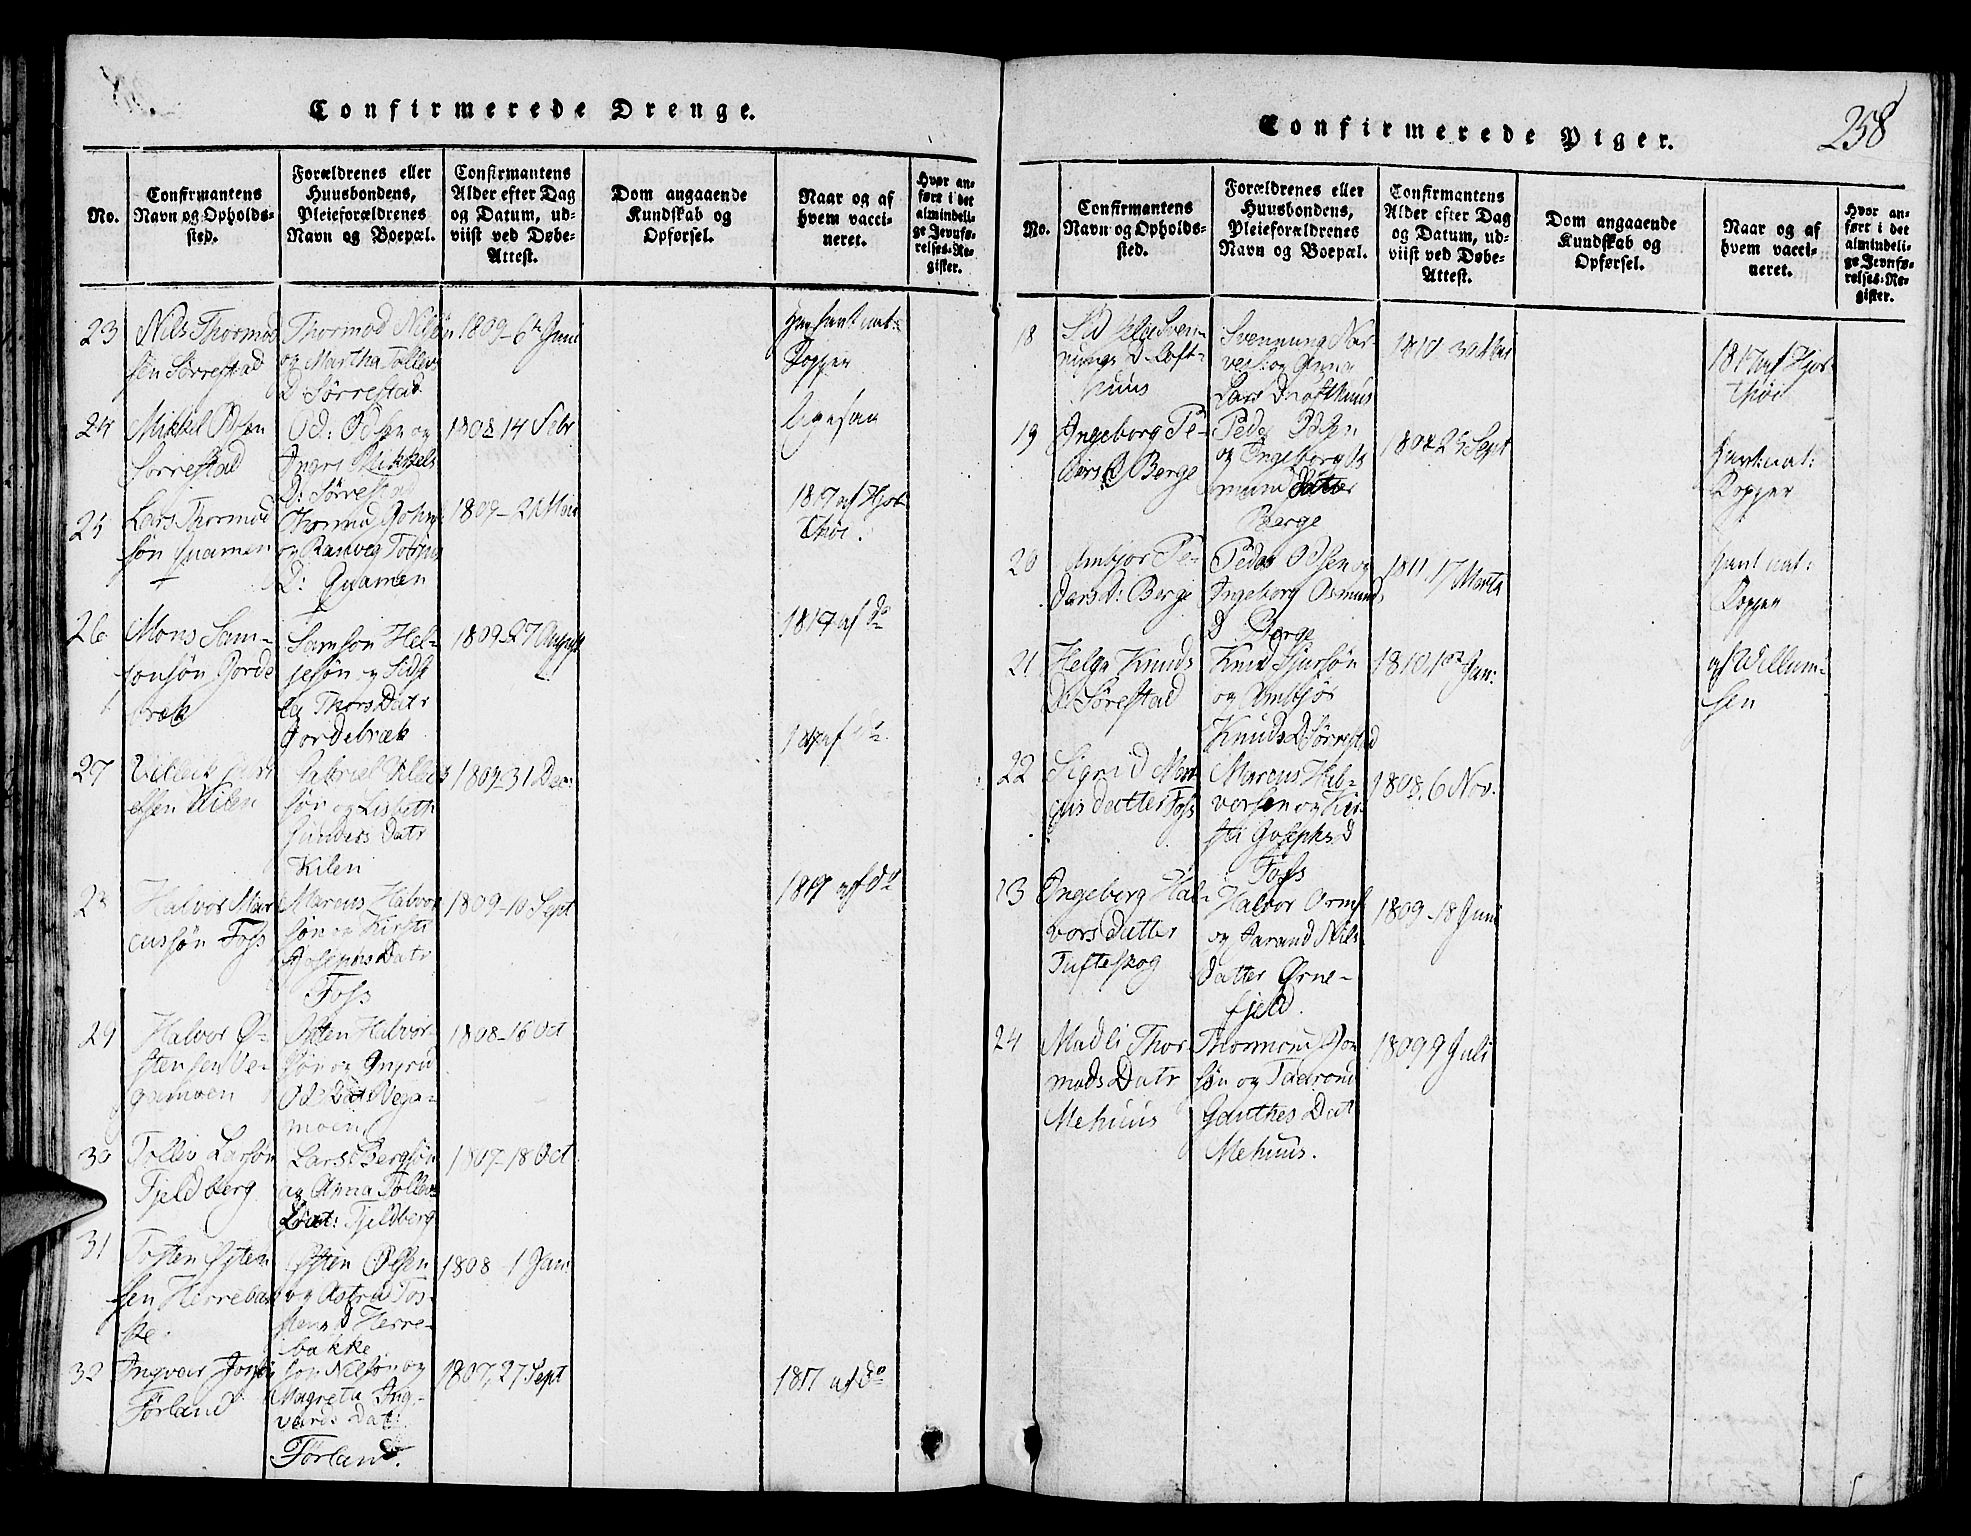 Confirmerede Drenge.
No.
Confirmantens
Navn og Opholds-
sted.
Forældrenes eller
Huusbondens,
Pleieforældrenes
Navn og Boepæl.
Confirmantens
Alder efter Dag
og Datum, ud-
viist ved Døbe-
Attest.
Dom angaaende
Kundskab og
Opførsel.
Naar og af
hvem vacci-
neret.
Hvor an-
ført i det
almindeli-
ge Jevnfø-
relses-Re-
gister.
23
Nils Thormod
sen Sørrestad
Thormod Nilsøn
og Martha Tollevs
D Sørrestad
1809 - 6te Juni
Har havt nat:
Kopper
24
Mikkel Odsen
Sorrestad
Od: Odsen og
Ingri Mikkels
D: Sørrestad
1808 14 Febr
Ligesaa
25
Lars Thormod
søn Quamen
Thormod Johns
og Ranveg
D: Quamen
1809 - 21 Mai
1817 af Hjor
thøi.
26
Mons Sam-
sonsøn Jorde
bræk
Samson Hel-
jesøn og Sidse
la Thors Datr
Jordebræk
1809-27 August
1817 af do
27
essen Kilen
Gabriel Villeks
søn og Lisbeth
Gunders Datr
Kilen
1809-31 Dec:
af do
Halvor Mar
cussøn Foss
Marcus Halvor
søn og Kirsti
Josephs Datr
Foss
1809-10 Sept
1817 af do
29
Halvor Ø-
stensen Ve-
gamoen
Østen Halvor-
søn og Ingrid
Vega-
moen
1808-16 Oct
30
Tollev Larsøn
Fjeldberg
Lars Bergsøn
og Anna Tollevs
Dat: Fjeldberg
1807-18 Oct
31
Tosten Østen
sen Herrebak
ke.
Østen Olsen
og Astrid Tos-
stens D Herre-
bakke
1808 - 1 Jan.
32
Ingvar Jonsøn
Førland
Jon Nilsøn og
Magreta Ing-
vards Dat:
Førland.
1807, 27 Sept
1817 af do
Confirmerede Piger.
258
No.
Confirmantens
Navn og Opholds-
sted.
Forældrenes eller
Huusbondens,
Pleieforældrenes
Navn og Boepæl.
Confirmantens
Alder efter Dag
og Datum, ud-
viist ved Døbe-
Attest.
Dom angaaende
Kundskab og
Opførsel.
Naar og af
hvem vacci-
neret.
Hvor an-
ført i det
almindeli-
ge Jevnfø-
relses-Re-
gister.
18
Sven-
nungs D Loft-
huus
Svennung Nar-
vesen og Anne
Lars D Lofthuus
1810 30 Mai
1817 af Hjor
thøi
19
Ingeborg Pe-
ders D Berge
Peder Odsen
og Ingeborg Os
mund Datter
Berge
Sept
Havt nat:
Kopper
20
Ambjor Pe-
ders D: Berge
Peder Odsen og
Ingeborg Osmunds
D Berge
1811. 17 Marts
Havt nat:
Kopper
21
Helga Knuds
D: Sørestad
Knud Sjursøn
og Ambjør
Knuds D Sørrestad
1810 1ste Jan:
af Willum-
sen
22
Sigrid Mar
cus datter Foss
Marcus Hal-
vorsen og Kir-
sti Josephs D
Foss
1808. 6 Nov.
23
Ingeborg Hal-
vors Datter
Tufteskog
Halvor Orms
og Jarand Nils
Datter Ørne-
fjeld.
1809 - 18 Juni
24
Madli Thor
mods Datr
Mehuus
Thormod Jon
søn og Taarond
Gauthes Dat
Mehuus.
1809 9 Juli